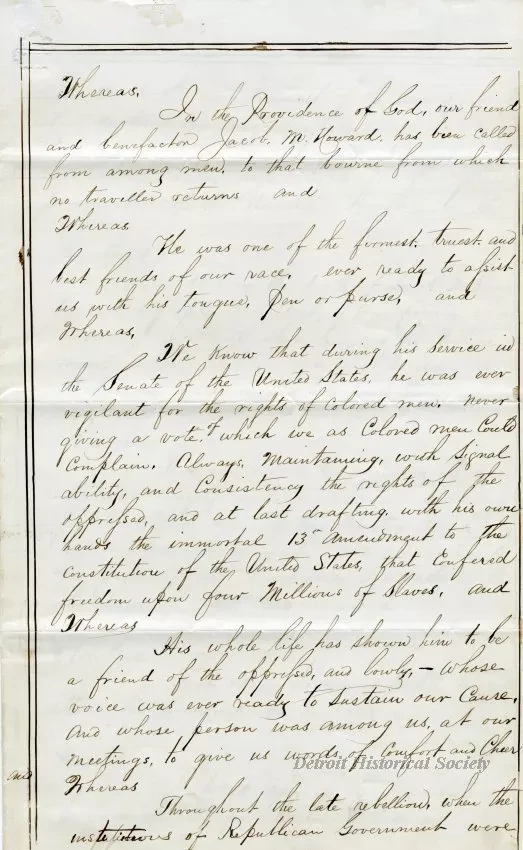 Whereas,
In the Providence of God, our friend
and benefactor Jacob. M. Howard. has been called
from among men, to that bourne from which
no traveller returns and
Whereas
He was one of the firmest. truest. and
best friends of our race, ever ready to assist
us with his tongue, Pen or purse, and
Whereas,
We Know that during his Service in
the Senate of the United States, he was ever
vigilant for the rights of colored men, never
giving a vote, of which we as Colored men Could
Complain. Always, Maintaining, with Signal
ability, and Consistency the rights of the
oppressed, and at last drafting, with his own
hands the immortal 13th amendment to the
Constitution of the United States, that Confered
freedom upon four Millions of Slaves, and
Whereas
His whole life has shown him to be
a friend of the oppressed, and lowly, - whose
voice was ever ready to Sustain our Cause,
And whose person was among us, at our
meetings, to give us words of Comfort and Cheer
and
Whereas
Detroit Historical Society
Throughout the late rebellion, when the
institutions of Republican Government were